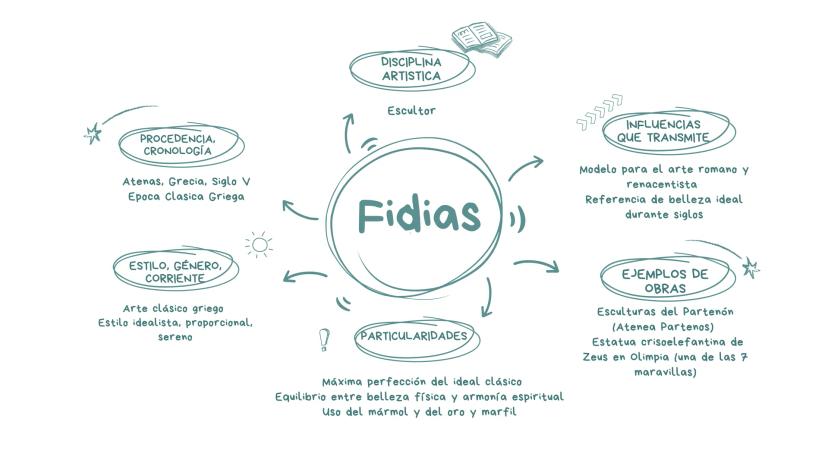 DISCIPLINA
ARTISTICA
Escultor
PROCEDENCIA,
CRONOLOGÍA
Atenas, Grecia, Siglo V
Epoca Clasica Griega
INFLUENCIAS
QUE TRANSMITE
Modelo para el arte romano y
renacentista
Referencia de belleza ideal
durante siglos
Fidias
ESTILO, GÉNERO,
CORRIENTE
Arte clásico griego
Estilo idealista, proporcional,
sereno
EJEMPLOS DE
OBRAS
Esculturas del Partenón
(Atenea Partenos)
Estatua crisoelefantina de
Zeus en Olimpia (una de las 7
maravillas)
PARTICULARIDADES
Máxima perfección del ideal clásico
Equilibrio entre belleza física y armonía espiritual
Uso del mármol y del oro y marfil